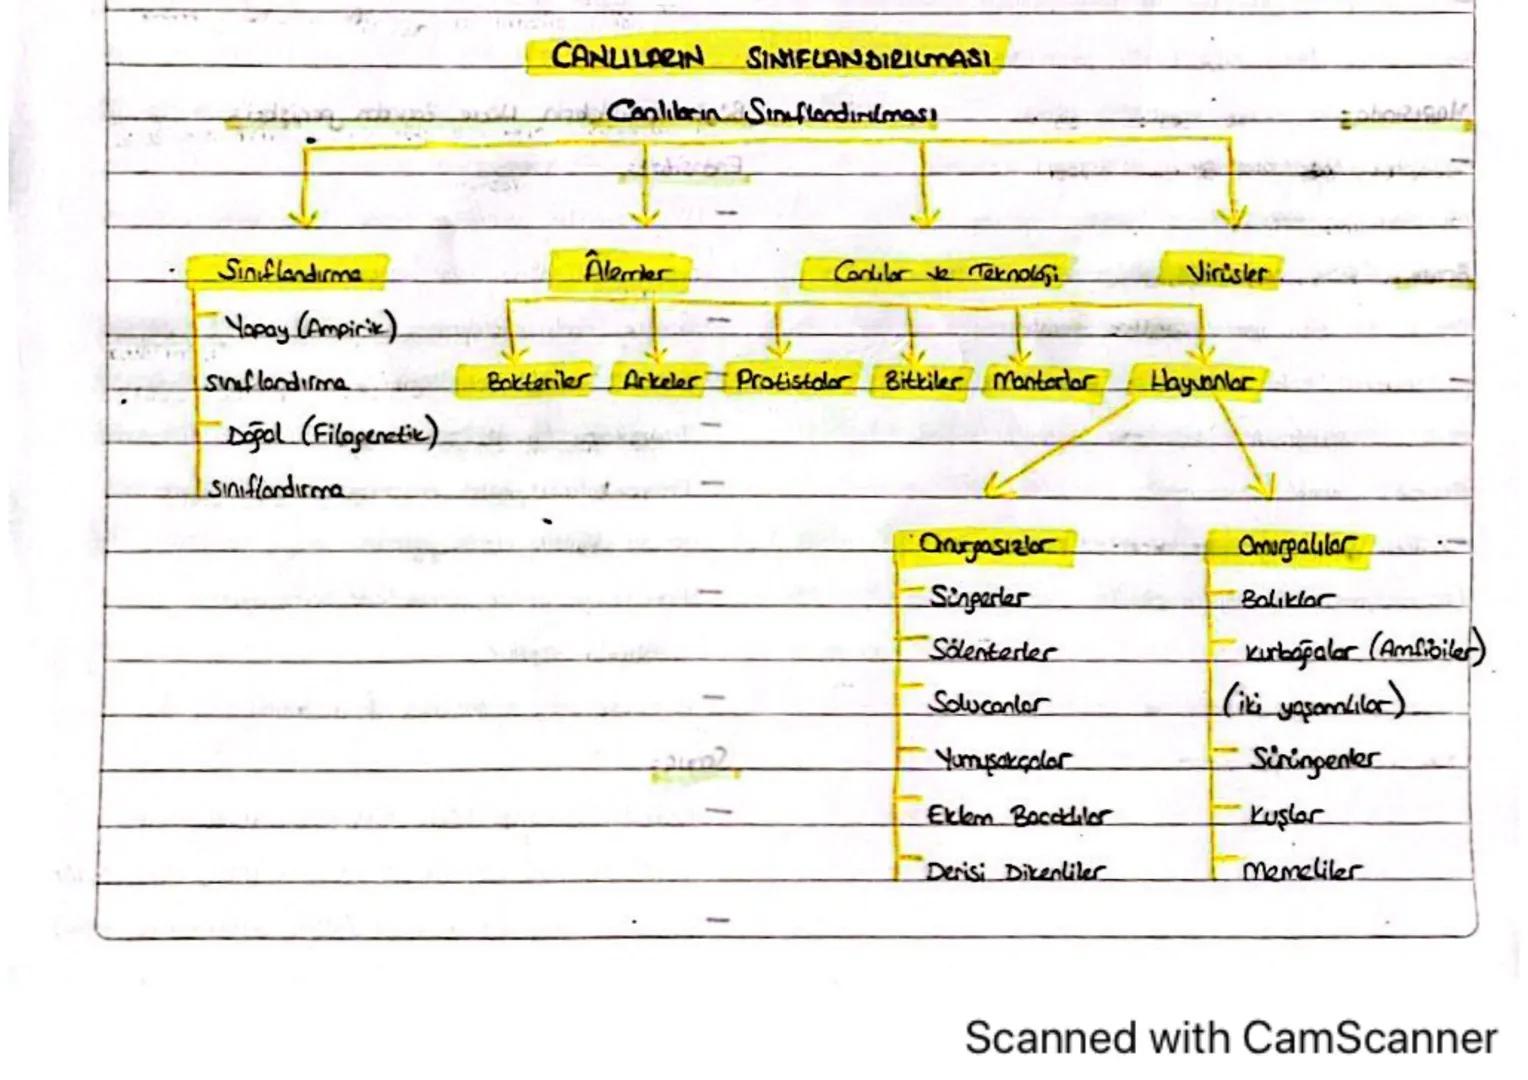 CANLILARIN SINIFLANDIRILMASI
Canlıların Sınıflandırılması
Sınıflandırma
Âlemler
Canlılar ve Teknoloji
Virüsler
Yapay (Ampirik)
sınıflandırma
Doğal (Filogenetik)
sınıflandırma
Bakteriler
Arkeler
Protistalar
Bitkiler
Mantarlar
Hayvanlar
Omurgasızlar
Süngerler
Sölenterler
Solucanlar
Yumuşakçalar
Eklem Bacaklılar
Derisi Dikenliler
Omurgalılar
Balıklar
Kurbağalar (Amfibiler)
(iki yaşamlılar)
Sürüngenler
Kuşlar
Memeliler
Scanned with CamScanner